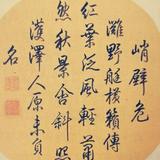 峭壁危
灘野艇橫籟傳
紅葉泛風輕蕭
然秋景含斜照
濩澤人原素負
名